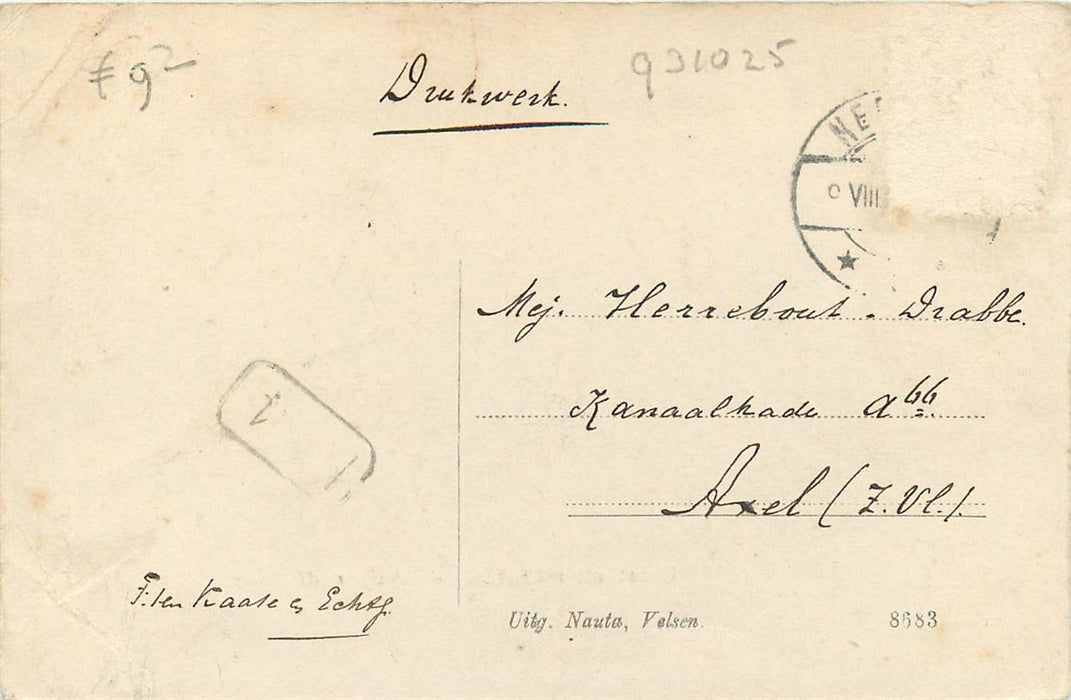 F 9 2
931025
Drukwerk.
NEE
VIII
Mej. Herrebout - Drabbe.
Kanaalkade a 66.
Axel (Z. Vl.).
F. ten Kaate en Echtg.
Uitg. Nauta, Velsen.
8683